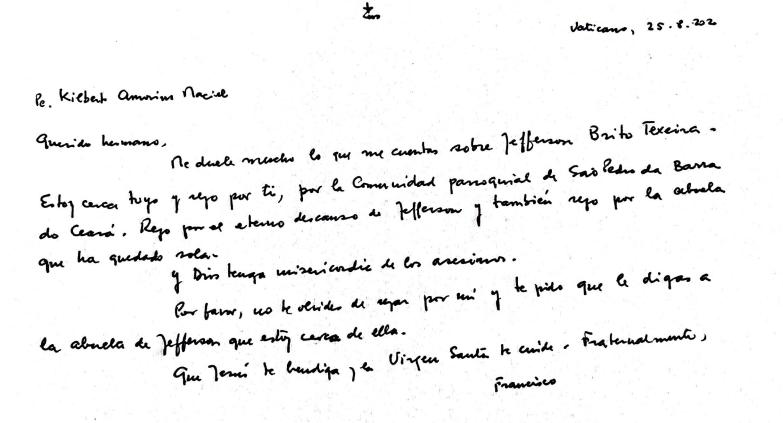 Vaticano, 25.8.2020
Pe. Kilbert Amorim Maciel
Querido hermano,
Me duele mucho lo que me cuentas sobre Jefferson Brito Texeira.
Estoy cerca tuyo y rezo por ti, por la Comunidad parroquial de São Pedro da Barra
do Ceará. Rezo por el eterno descanso de Jefferson y también rezo por la abuela
que ha quedado sola.
Y Dios tenga misericordia de los asesinos.
Por favor, no te olvides de rezar por mí y te pido que le digas a
la abuela de Jefferson que estoy cerca de ella.
Que Jesús te bendiga y la Virgen Santa te cuide. Fraternalmente,
Francisco